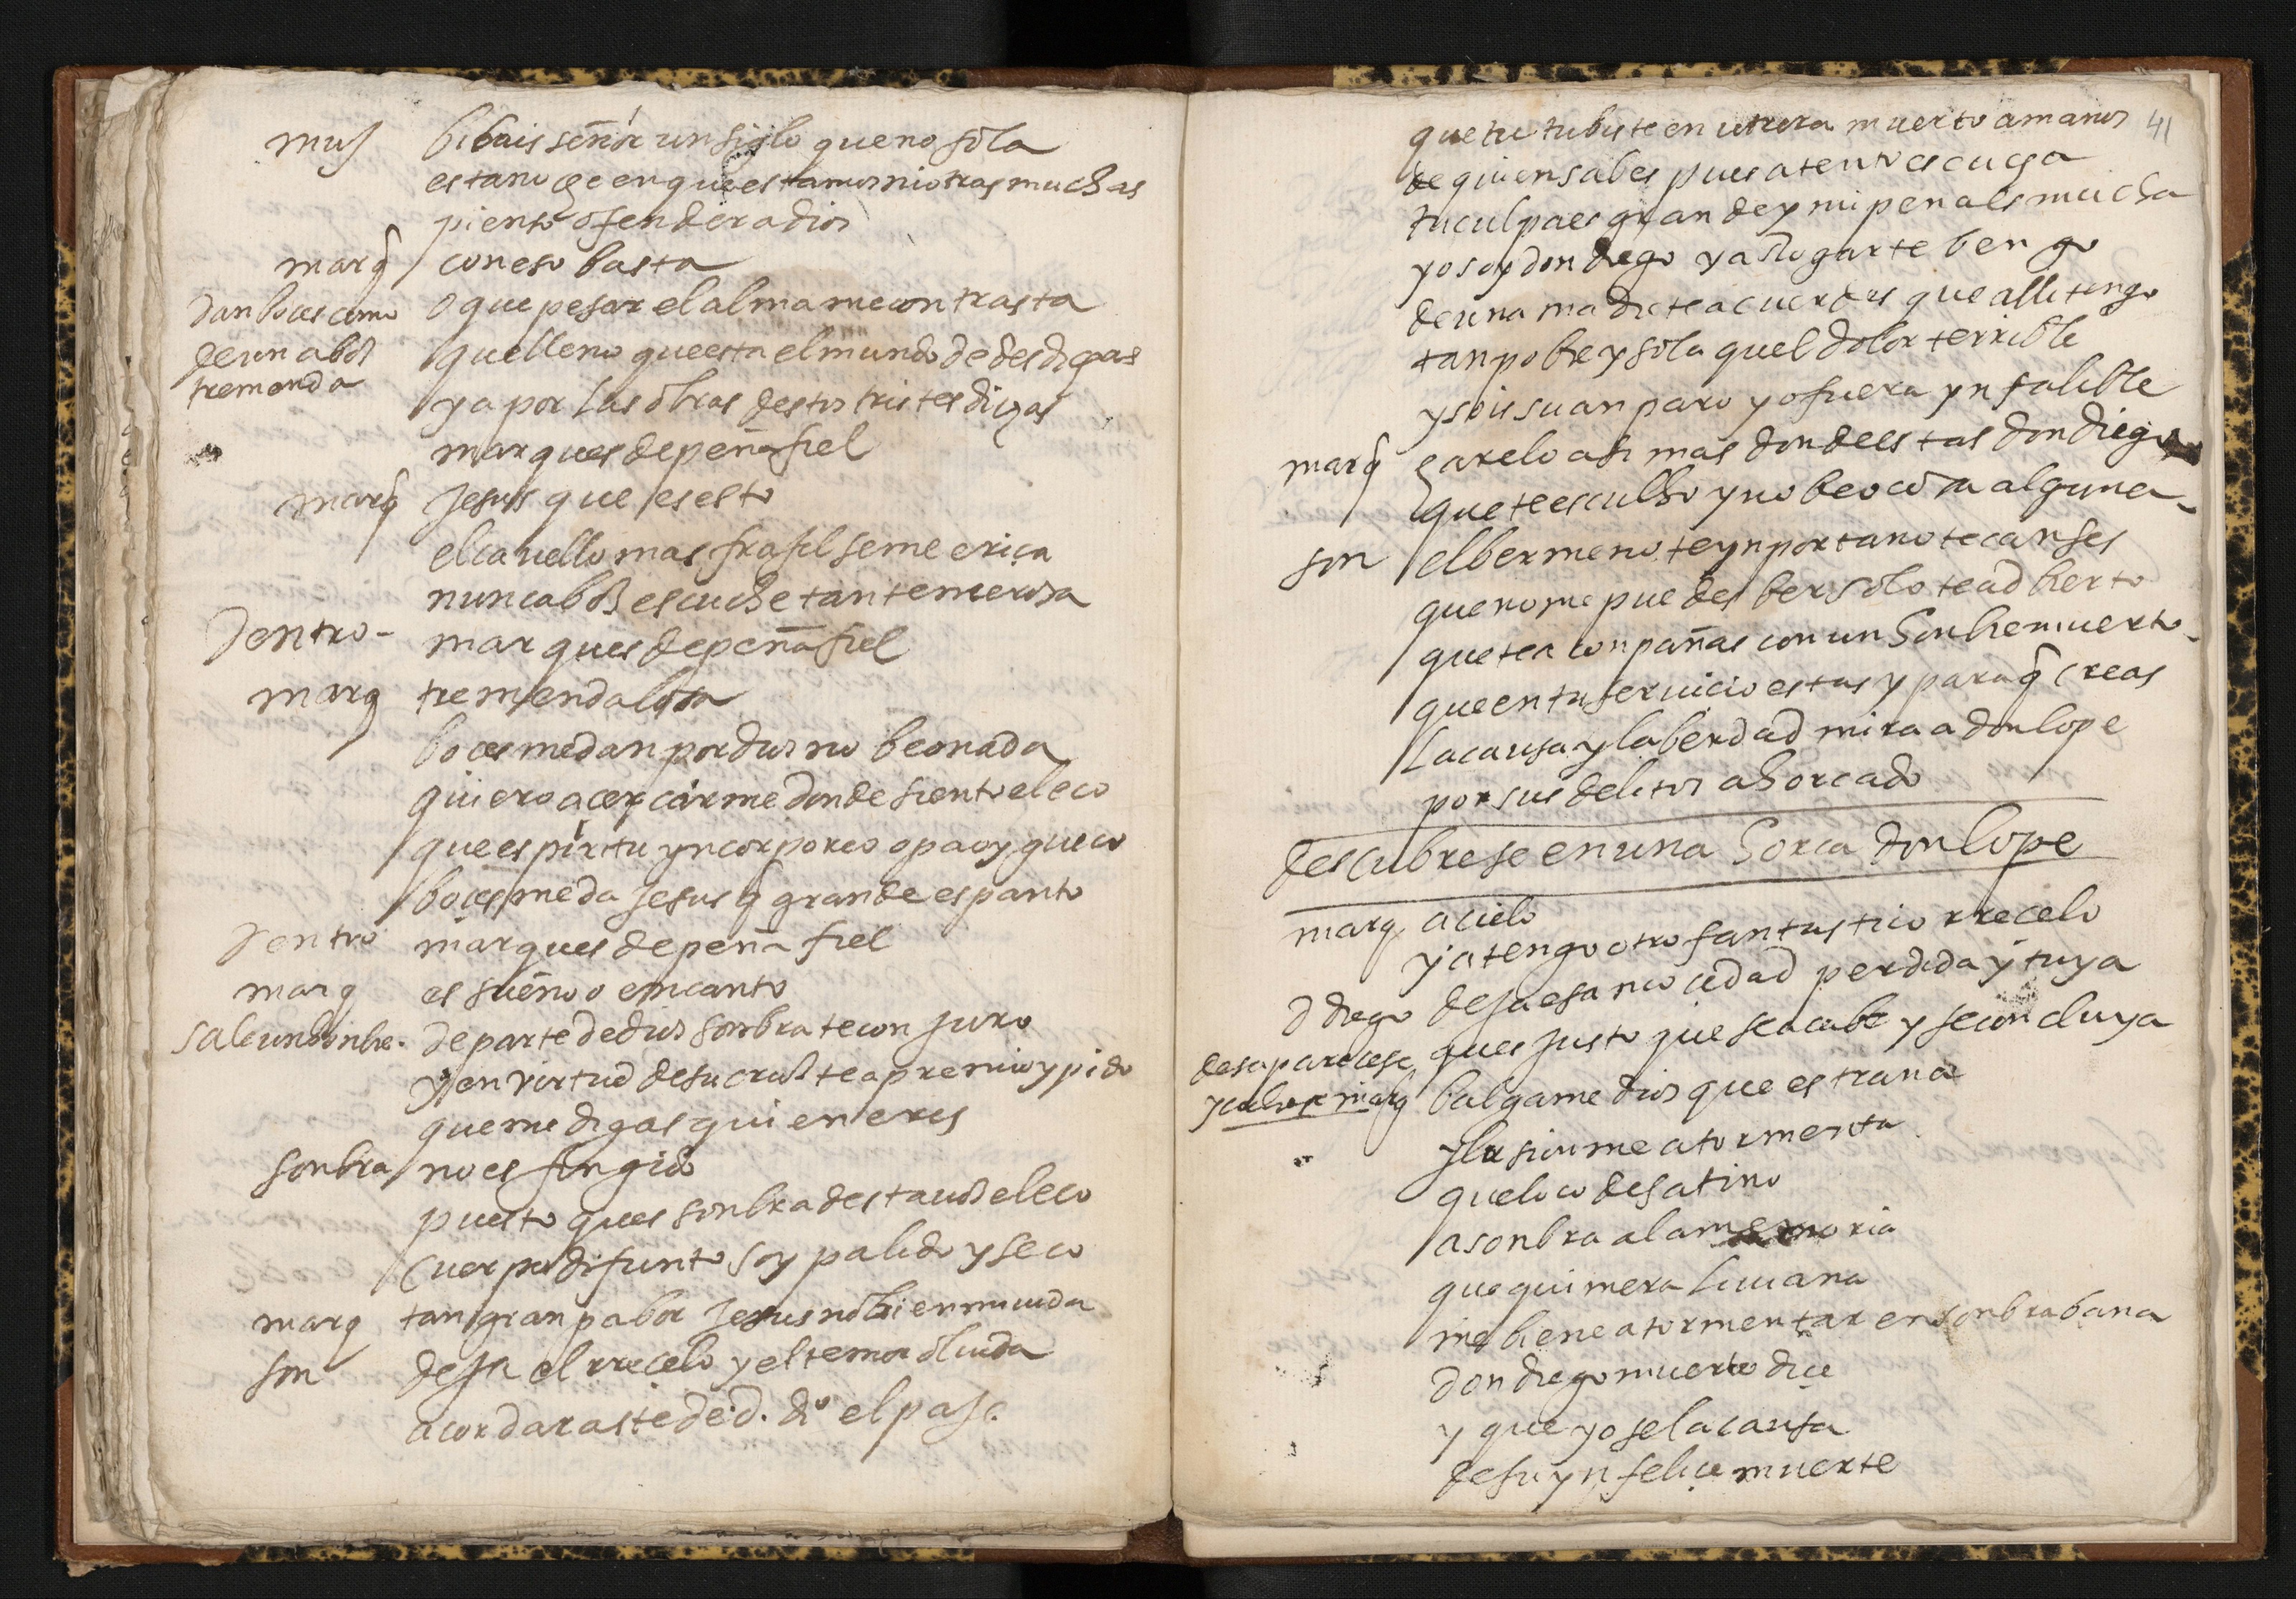 mus bibais señor un siglo que no sola
esta noche en que estamos ni otras muchas
piento ofender a dios
marq̃ con eso basta
dan boces como o que pesar el alma me contrasta
de un abos que lleno que esta el mundo de desdichas
tremenda ya por las obras destos tristes dichas
marques de peñafiel
marq̃ Jesus que es esto
el cauello mas frasil se me eriça
nunca bos escuche tan temerosa
dentro - marques de peñafiel
marq tremenda cosa
boces me dan por dios no beo nada
quiero acercarme donde siento el eco
que espiritu yncorporeo opaco y gueco
boces me da Jesus q̃ grande espanto
dentro marques de peña fiel
marq es sueño o encanto
sale un honbre. de parte de dios sonbra te conjuro
y en virtud de su crus te apremio y pido
que me digas quien eres
sonbra no es fingido
puesto ques sonbra desta uos el eco
cuerpo difunto soy palido y seco
marq tan gran pabor Jesus no bi en mi uida
son deja el rrecelo y el temor oluida
acordaraste de d. dº el paje.
41
que tu tubiste en utrera muerto a manos
de quien sabes pues atento escucha
tu culpa es grande y mi pena es mucha
yo soy don diego y a rrogarte bengo
de una madre te acuerdes que alli tengo
tan pobre y sola quel dolor terrible
y sois su anparo yo fuera ynfalible
marq̃ harelo asi mas donde estas don diego
que te escucho y no beo cosa alguna
son el berme no te ynporta no te canses
que no me puedes ber solo te adbierto
que te aconpañas con un honbre muerto
que en tu seruicio estas y para q̃ creas
la causa y la berdad mira a don lope
por sus delitos ahorcado
descubrese en una horca don lope
marq a cielo
ya tengo otro fantastico rrecelo
d diego deja esa mocedad perdida y tuya
desaparecese ques justo que se acabe y se concluya
marq balgame dios que estraña
ylusion me atormenta
que loco desatino
asonbra a la memoria
que quimera liuiana
me biene a tormentar en sonbra bana
don diego muerto dice
y que yo se la causa
de su ynfelice muerte